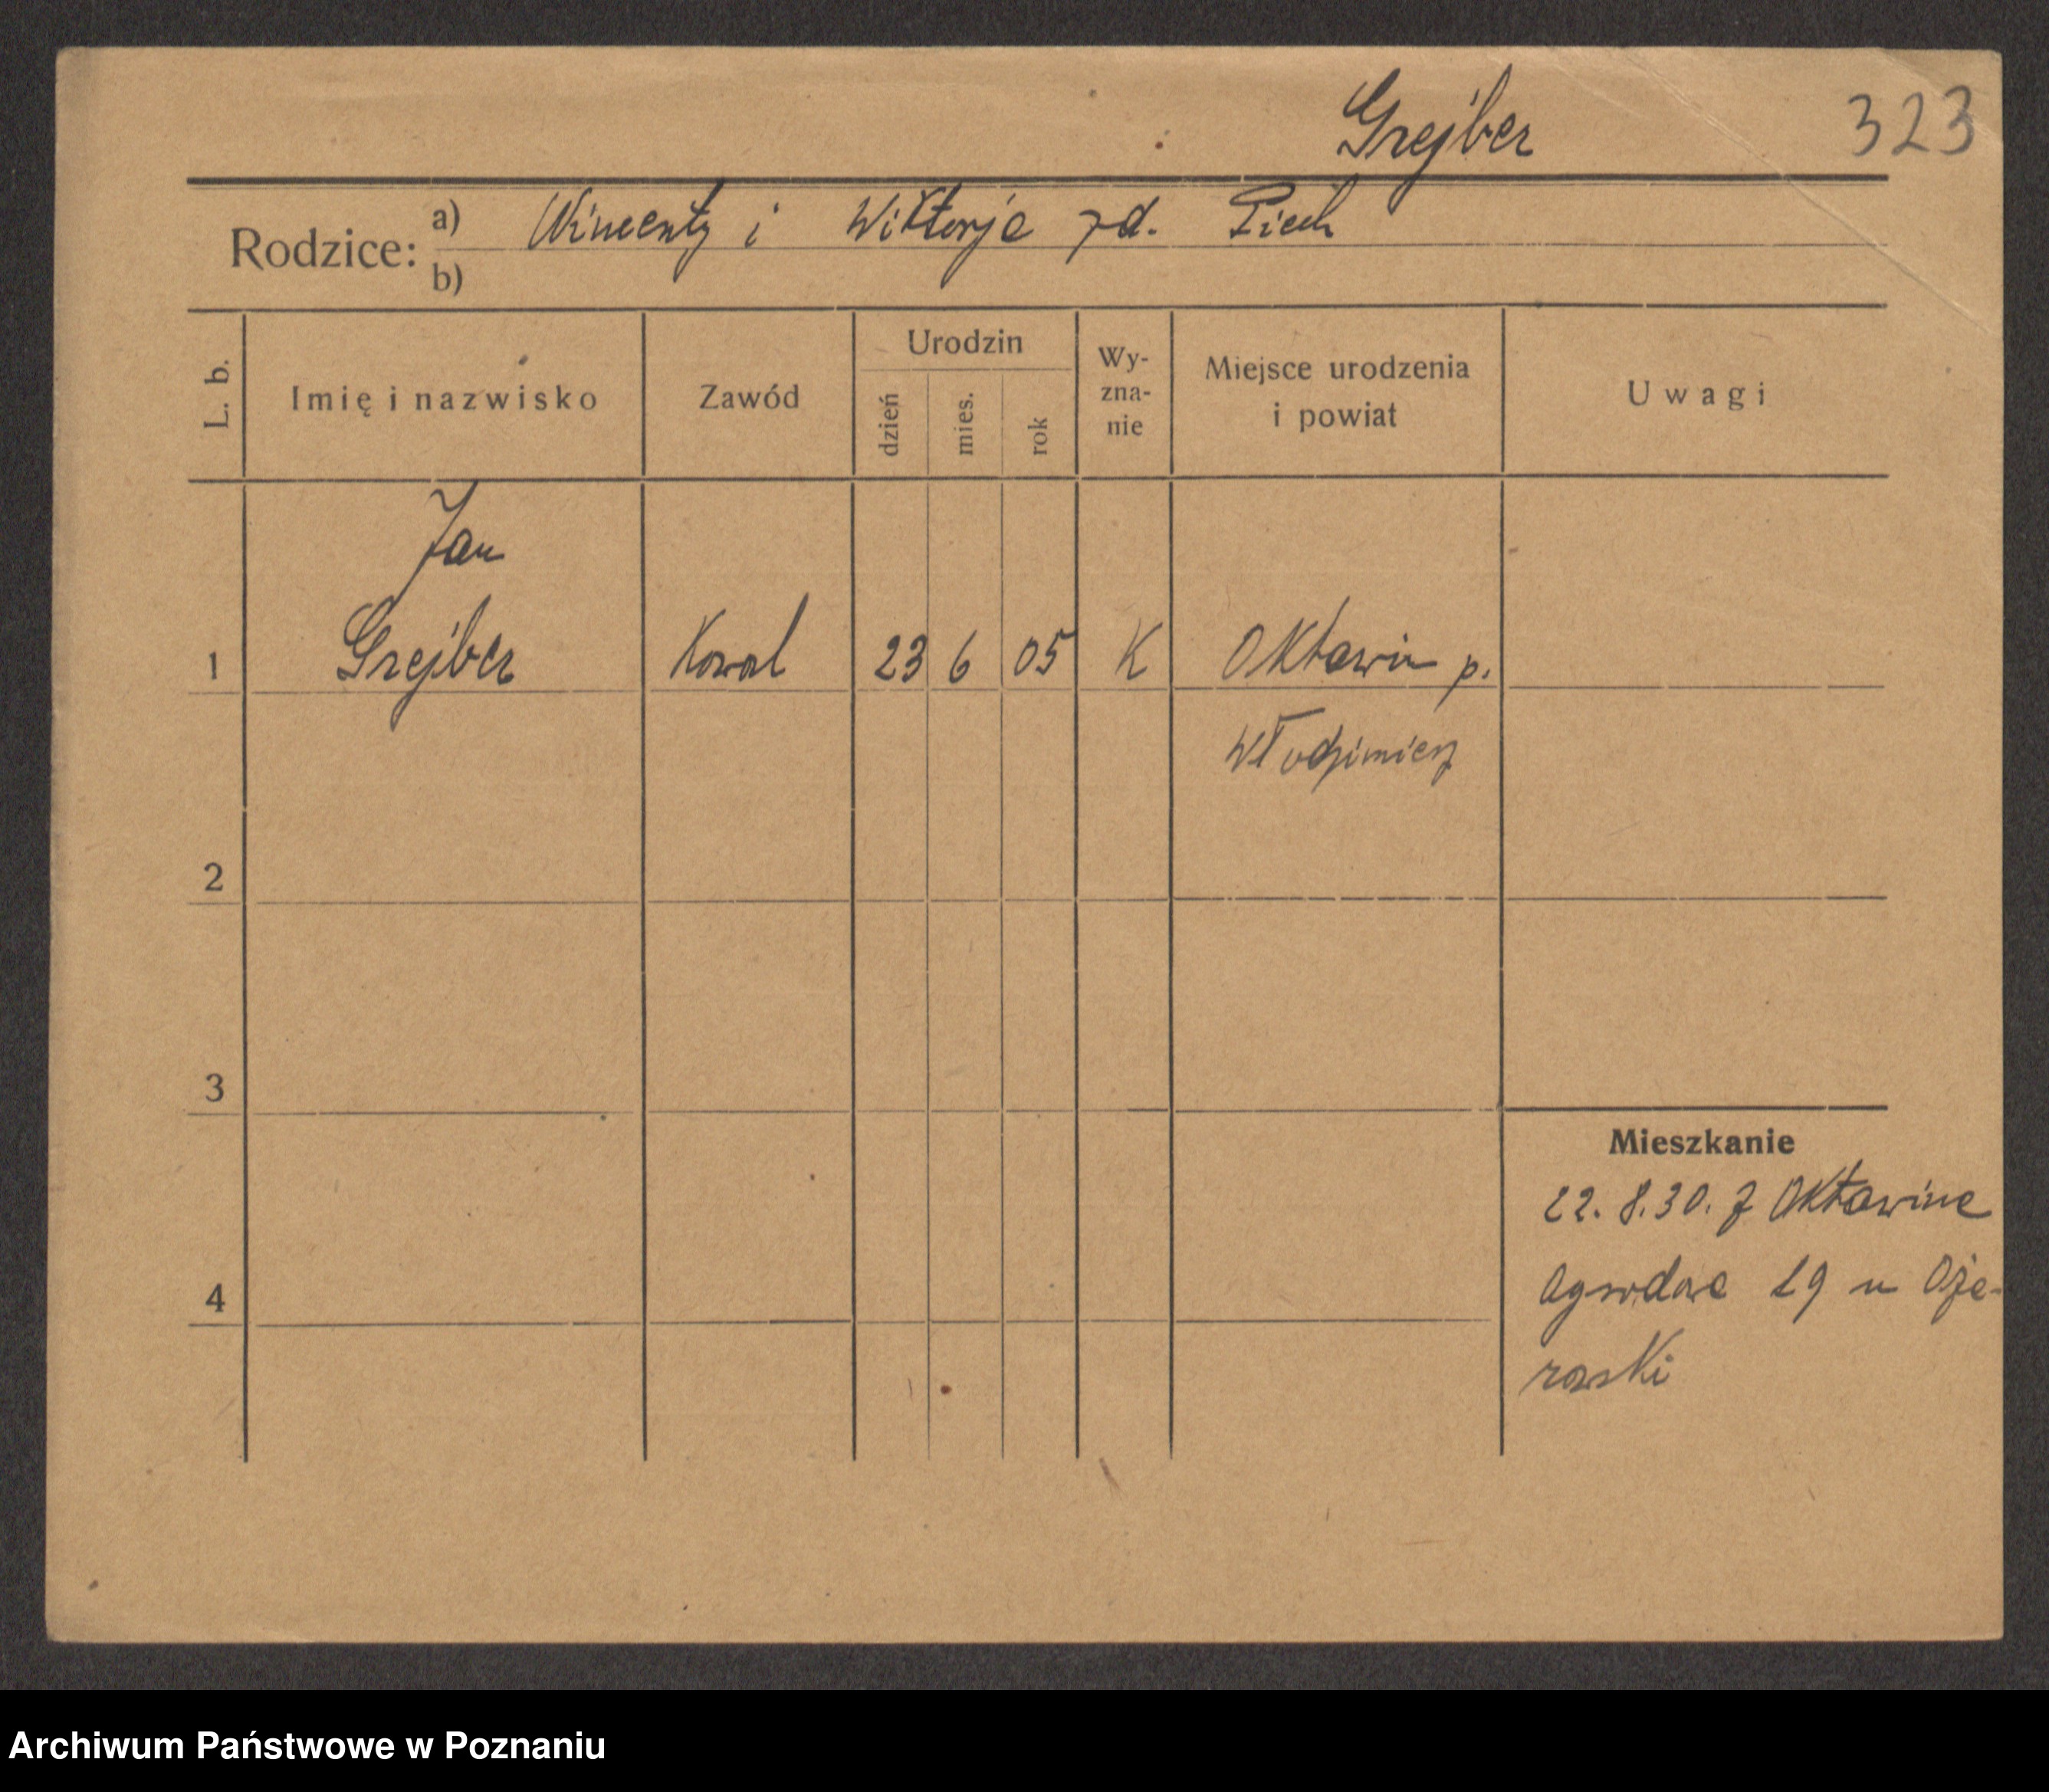 Grejber 323
Rodzice: a) Wincenty i Wiktorja zd. Piech
b)
L. b. Imię i nazwisko Zawód Urodzin dzień mies. rok Wy-zna-nie Miejsce urodzenia i powiat Uwagi
Jan
1 Grejber Kowal 23 6 05 K Oktawin p.
Włodzimierz
2
3
Mieszkanie
22. 8. 30. z Oktawina
4 Ogrodowa 19 u
Archiwum Państwowe w Poznaniu